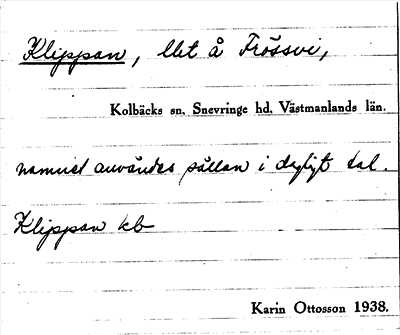 Klippan, llet å Frössvi,
Kolbäcks sn. Snevringe hd. Västmanlands län.
namnet användes sällan i dagligt tal.
Klippan kb
Karin Ottosson 1938.